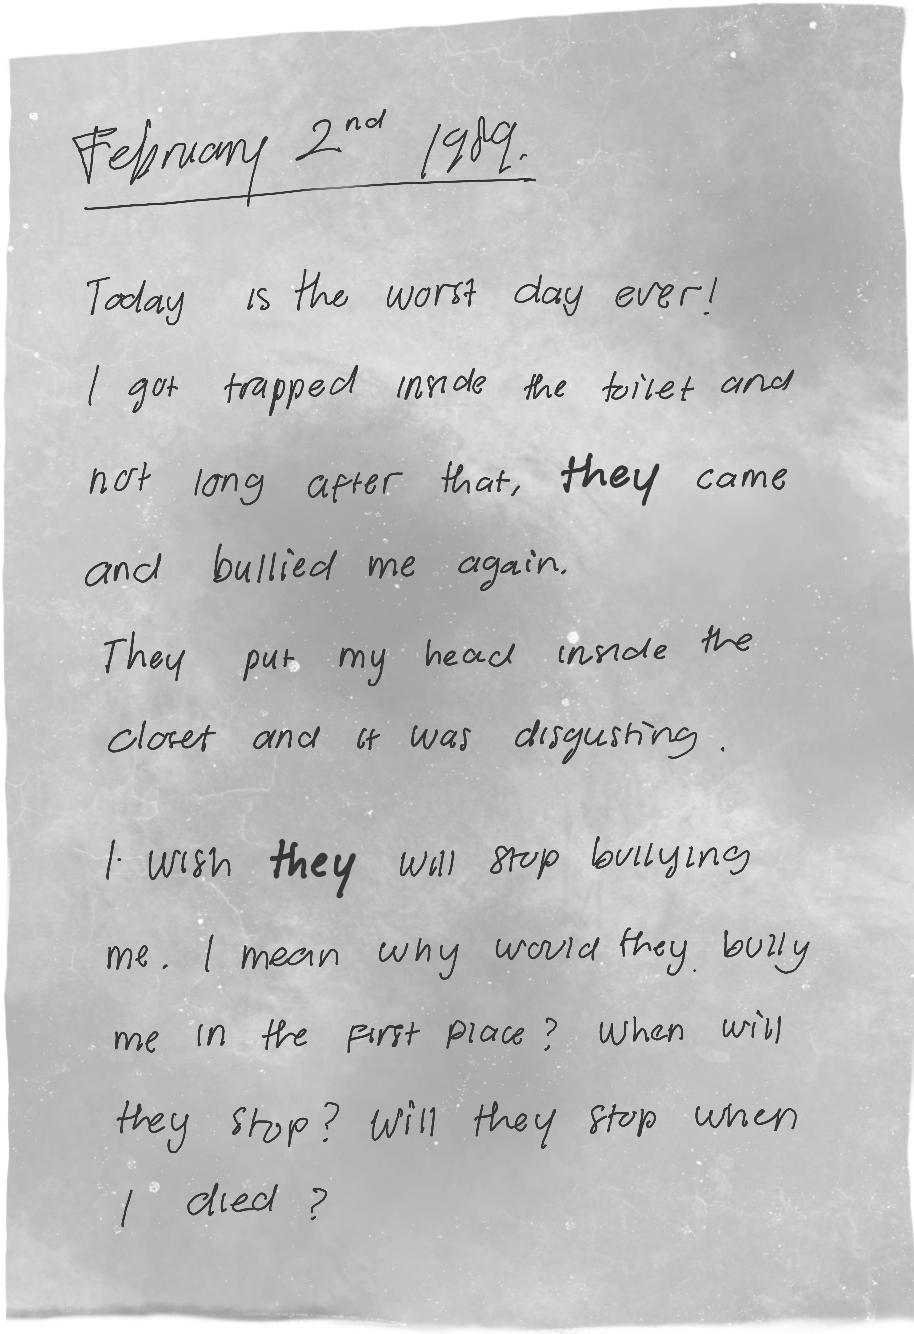 February 2nd 1989.
Today is the worst day ever!
I got trapped inside the toilet and
not long after that, they came
and bullied me again.
They put my head inside the
closet and it was disgusting.
I wish they will stop bullying
me. I mean why would they bully
me in the first place? When will
they stop? Will they stop when
I died?